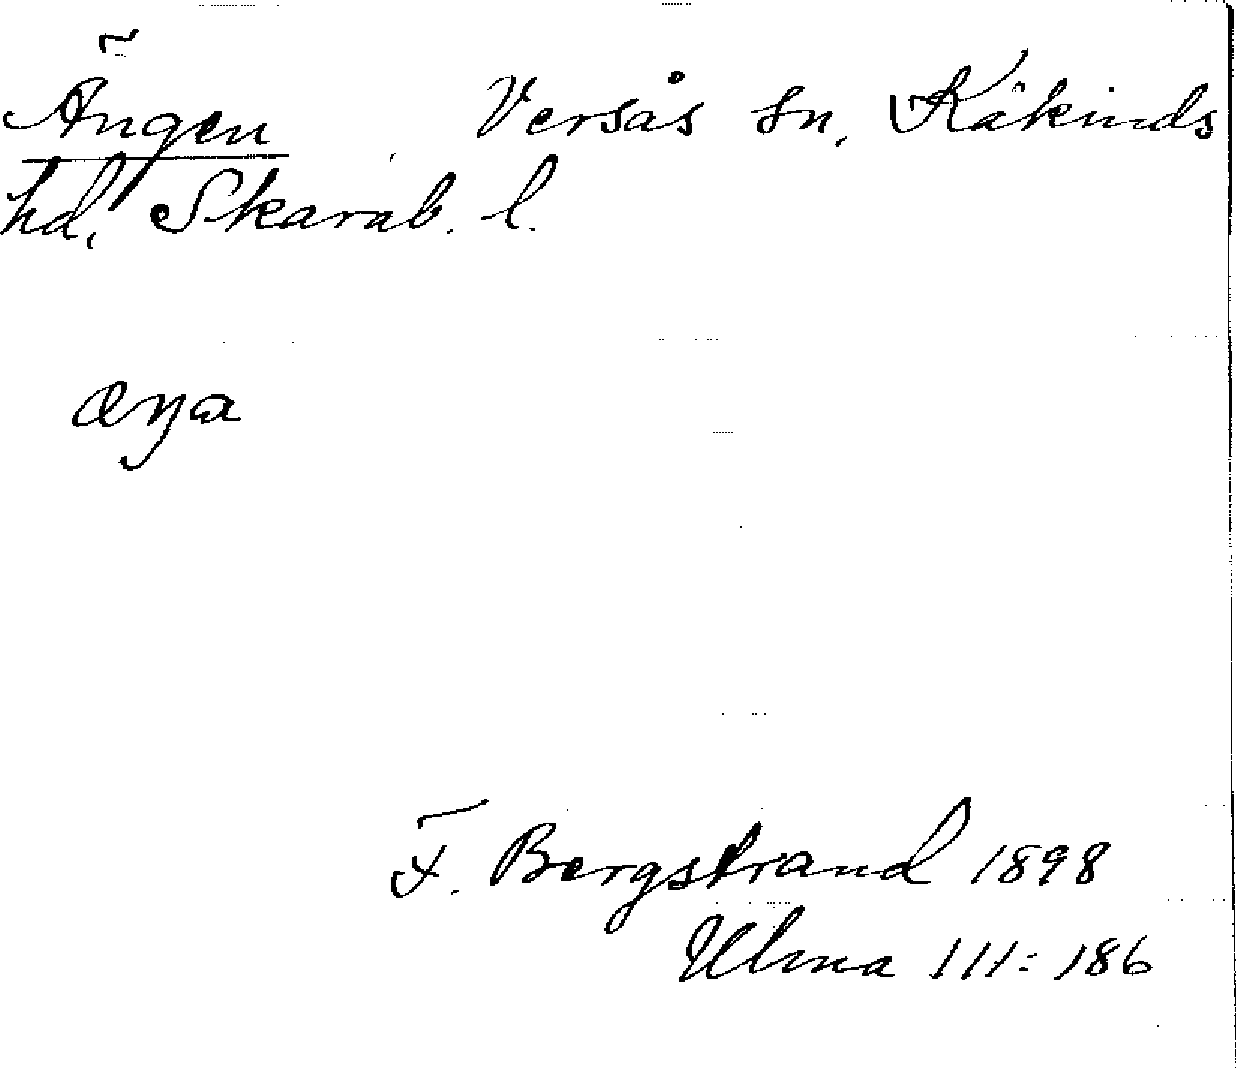 Ängen Versås sn, Kåkinds
hd, Skarab. l.
æŋa
F. Bergstrand 1898
Ulma 111:186